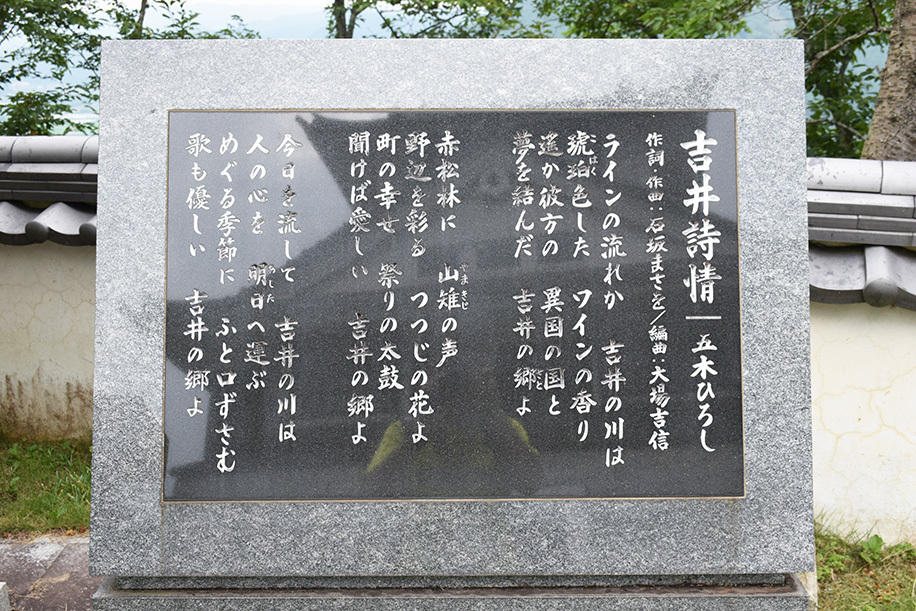 吉井詩情 ― 五木ひろし
作詞・作曲:石坂まさを/編曲:大場吉信
ラインの流れか 吉井の川は
琥珀色した ワインの香り
遥か彼方の 異国の国と
夢を結んだ 吉井の郷よ
赤松林に 山雉の声
野辺を彩る つつじの花よ
町の幸せ 祭りの太鼓
聞けば愛しい 吉井の郷よ
今日を流して 吉井の川は
人の心を 明日へ運ぶ
めぐる季節に ふと口ずさむ
歌も優しい 吉井の郷よ